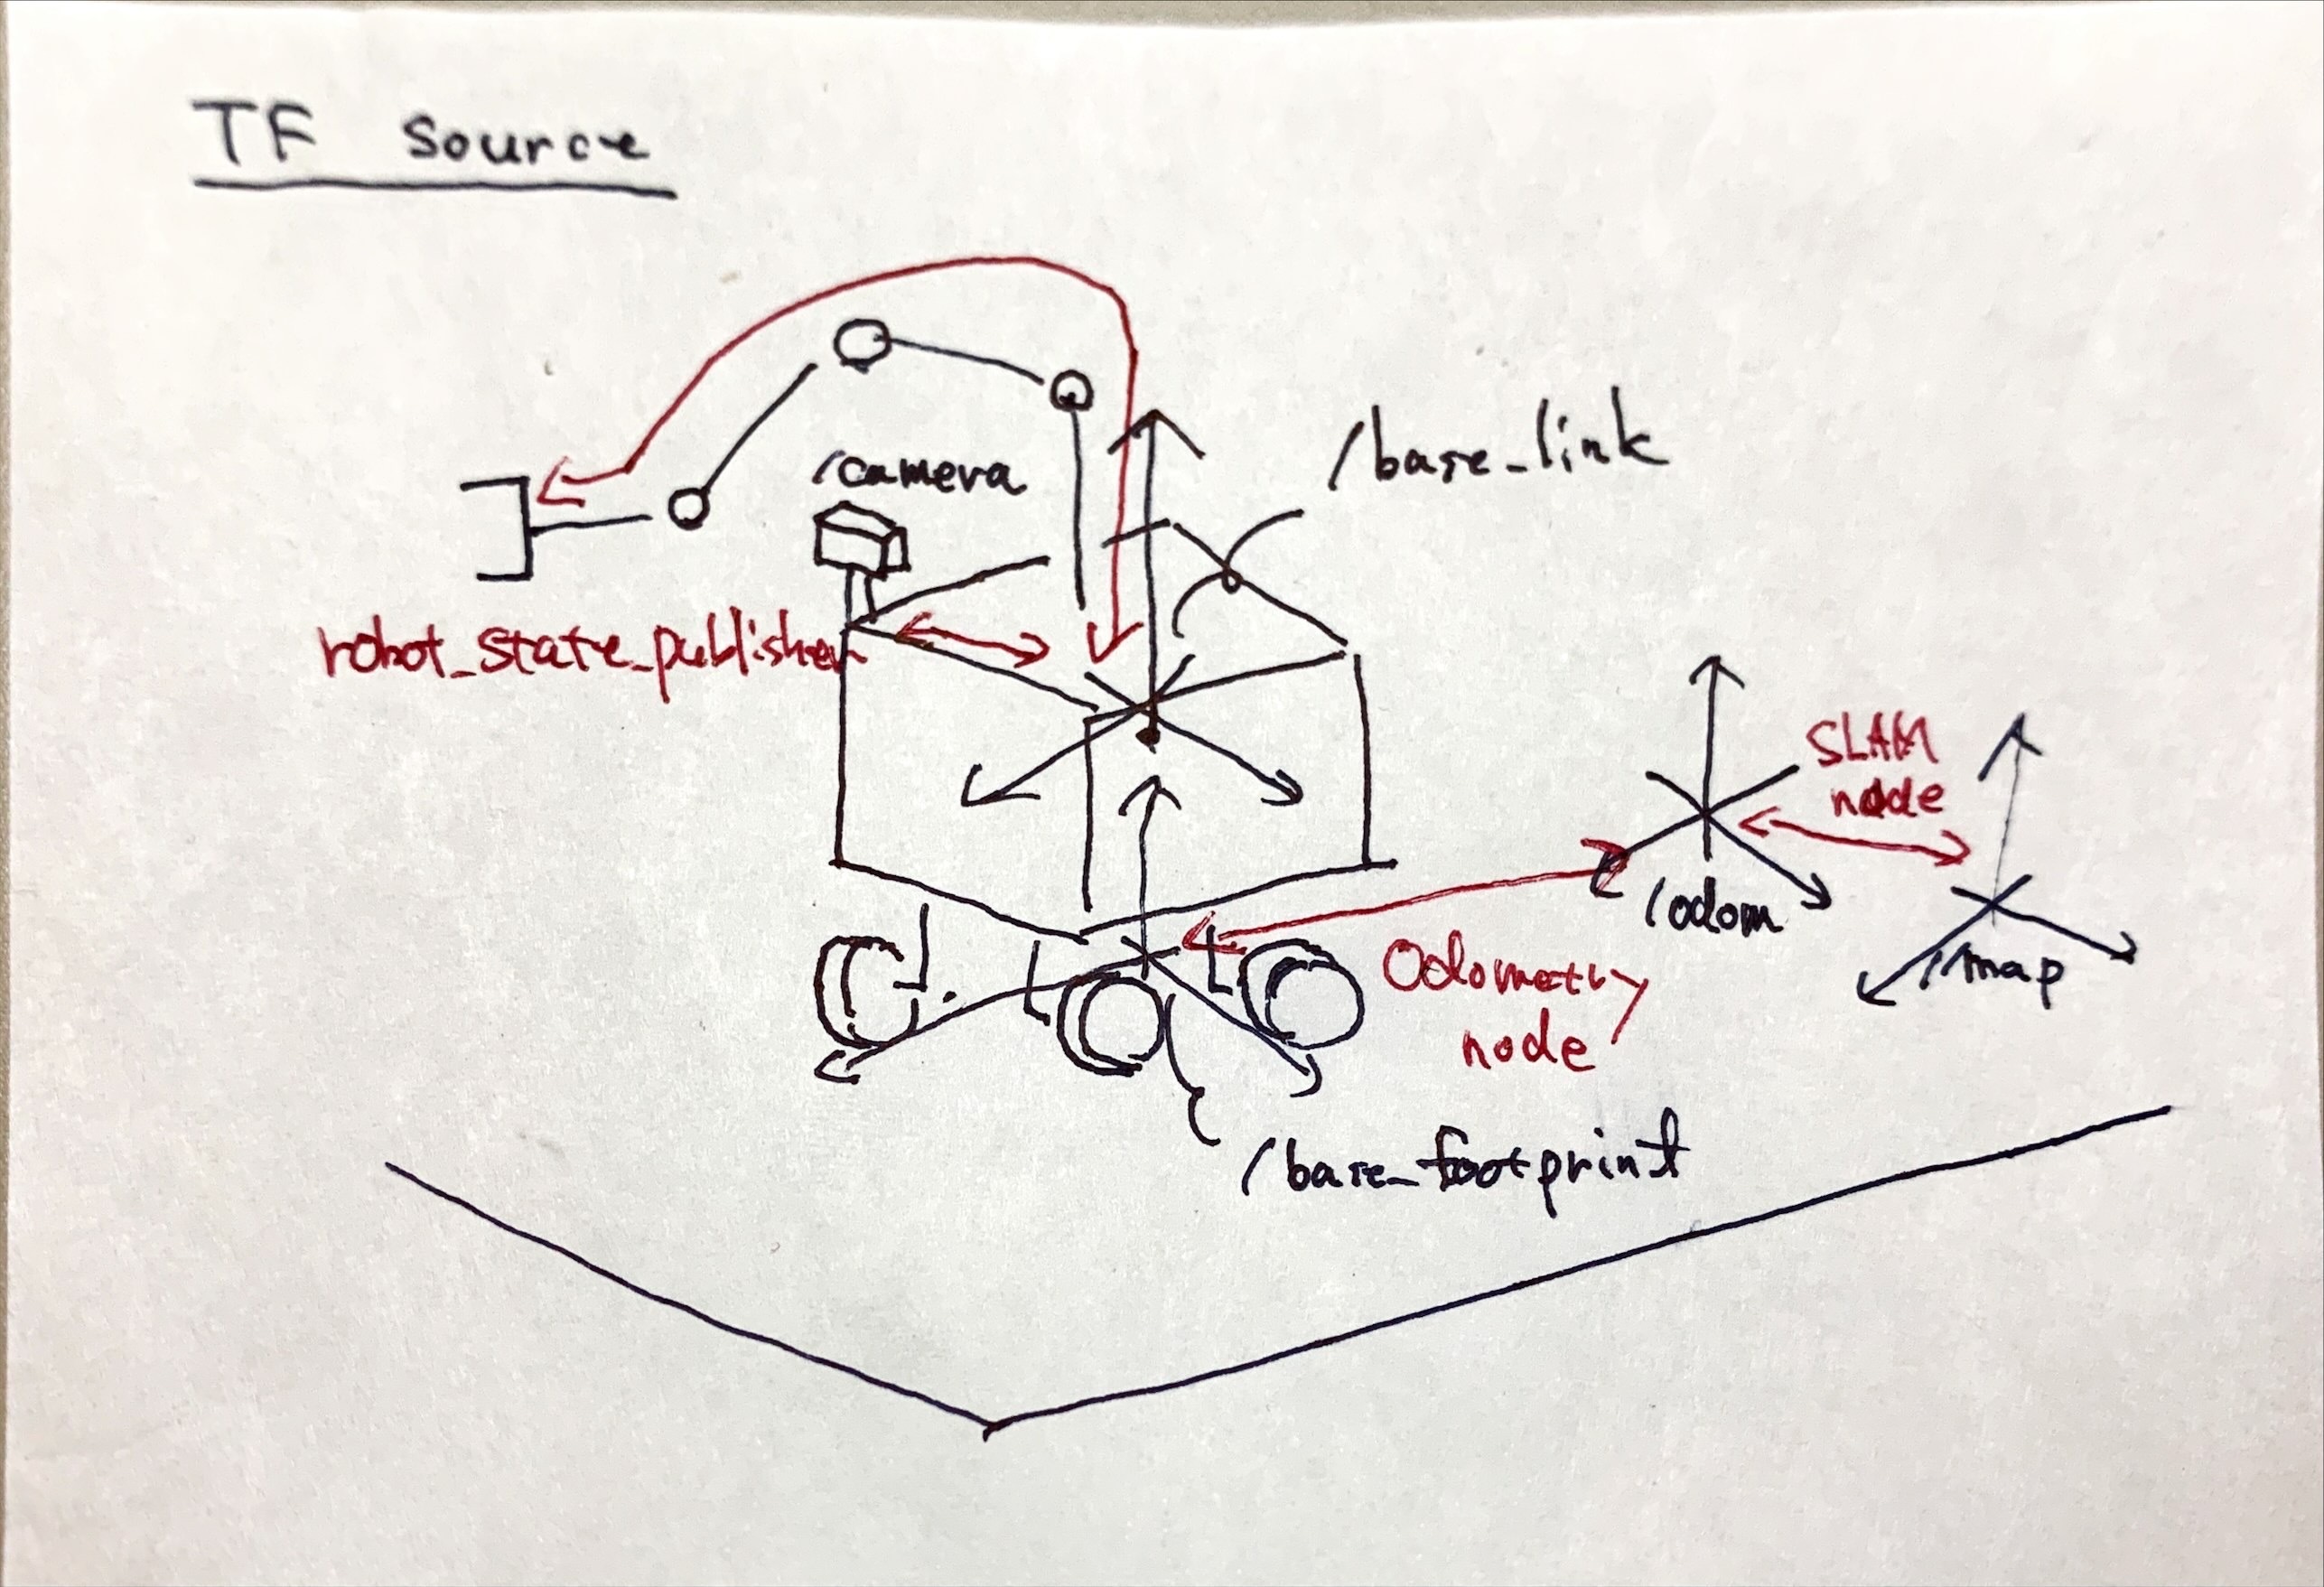 TF Source
/camera
/base_link
robot_state_publisher
SLAM
node
/odom
/map
Odometry
node
/base_footprint